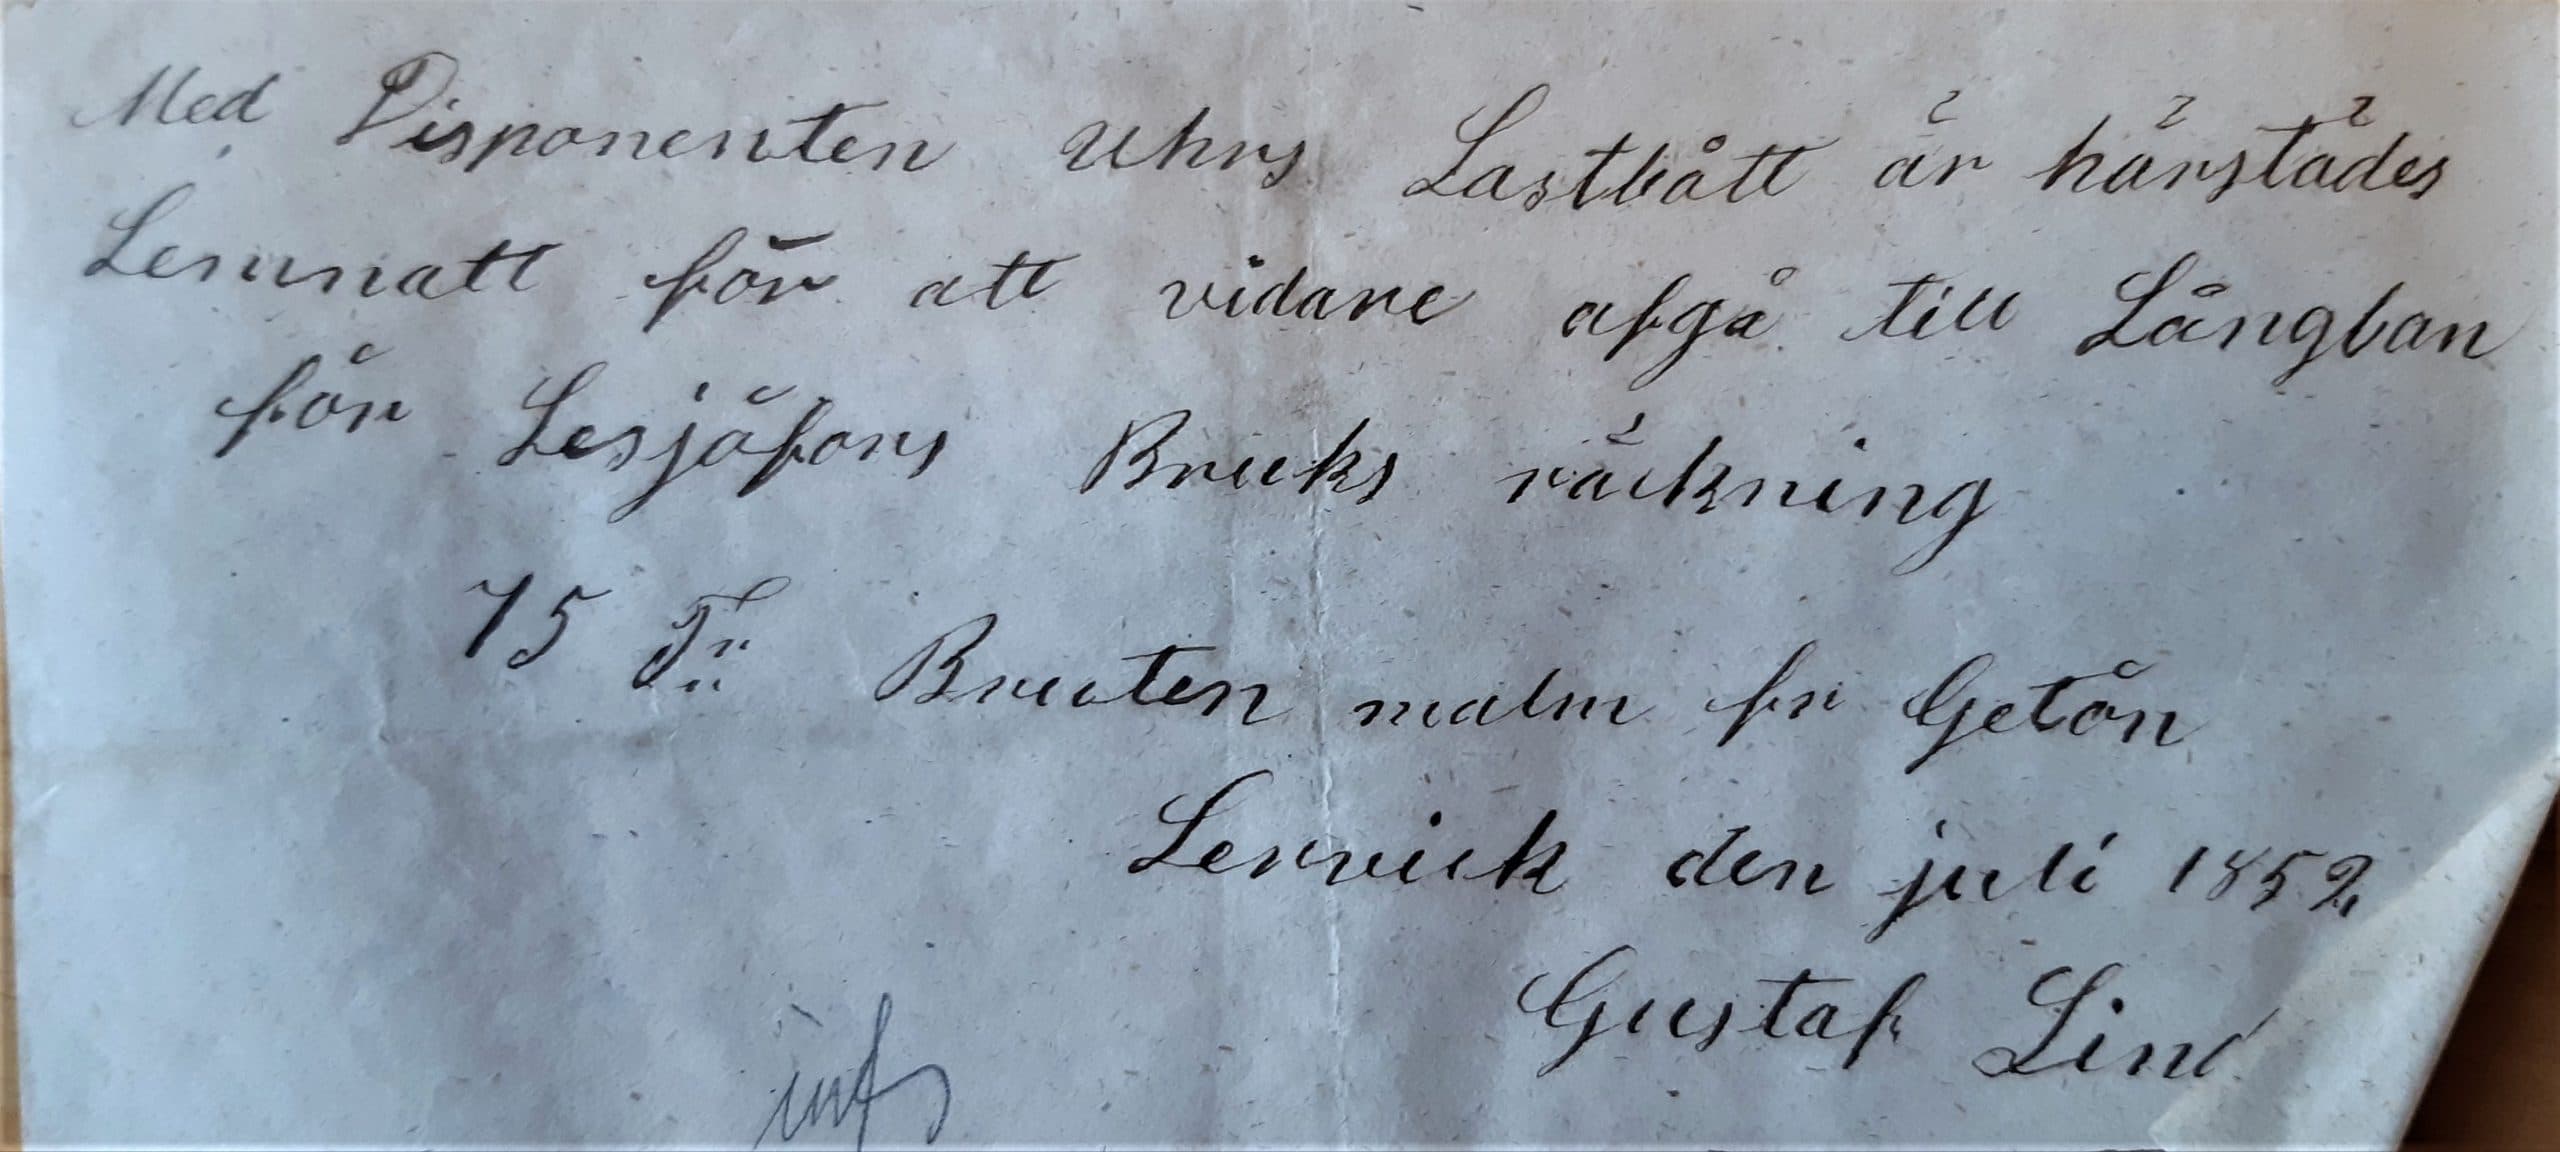 Med Disponenten Uhrs Lastbått är härstädes
Lemnatt för att vidare afgå till Långban
för Lesjöfors Bruks räckning
75 Bruten malm fr Getön
Lervick den juli 1852
Gustaf Lind